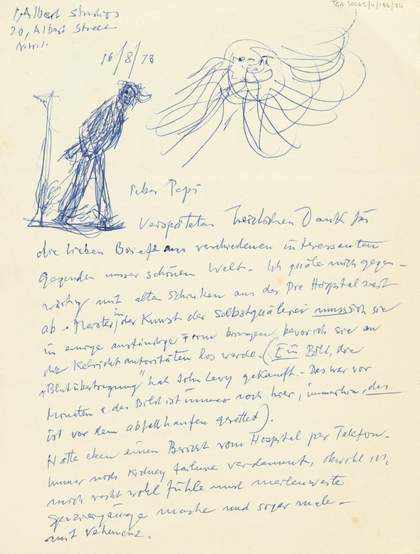 Albert Studios
20, Albert Street
N.W.1.
TGA
16/8/78
Lieber Pepi
Verspäteten herzlichen Dank für
die lieben Briefe aus verschiedenen interessanten
Gegenden unserer schönen Welt. Ich quäle mich gegen-
wärtig mit alten Schinken aus der Pre Hospital Zeit
ab. Meister in der Kunst der Selbstquälerei muss ich sie
in einige anständige Form bringen, bevor ich sie an
die Kehrichtautoritäten los werde. (Ein Bild, die
"Blutübertragung" hat John Levy gekauft. - Das war vor
Monaten & das Bild ist immer noch hier, immerhin, das
ist vor dem Abfallhaufen gerettet).
Hatte eben einen Bericht vom Hospital per Telefon.
Immer noch Kidney failure verdammt, obwohl ich
mich recht wohl fühle und meilenweite
Spaziergänge mache und sogar male -
mit Vehemenz.